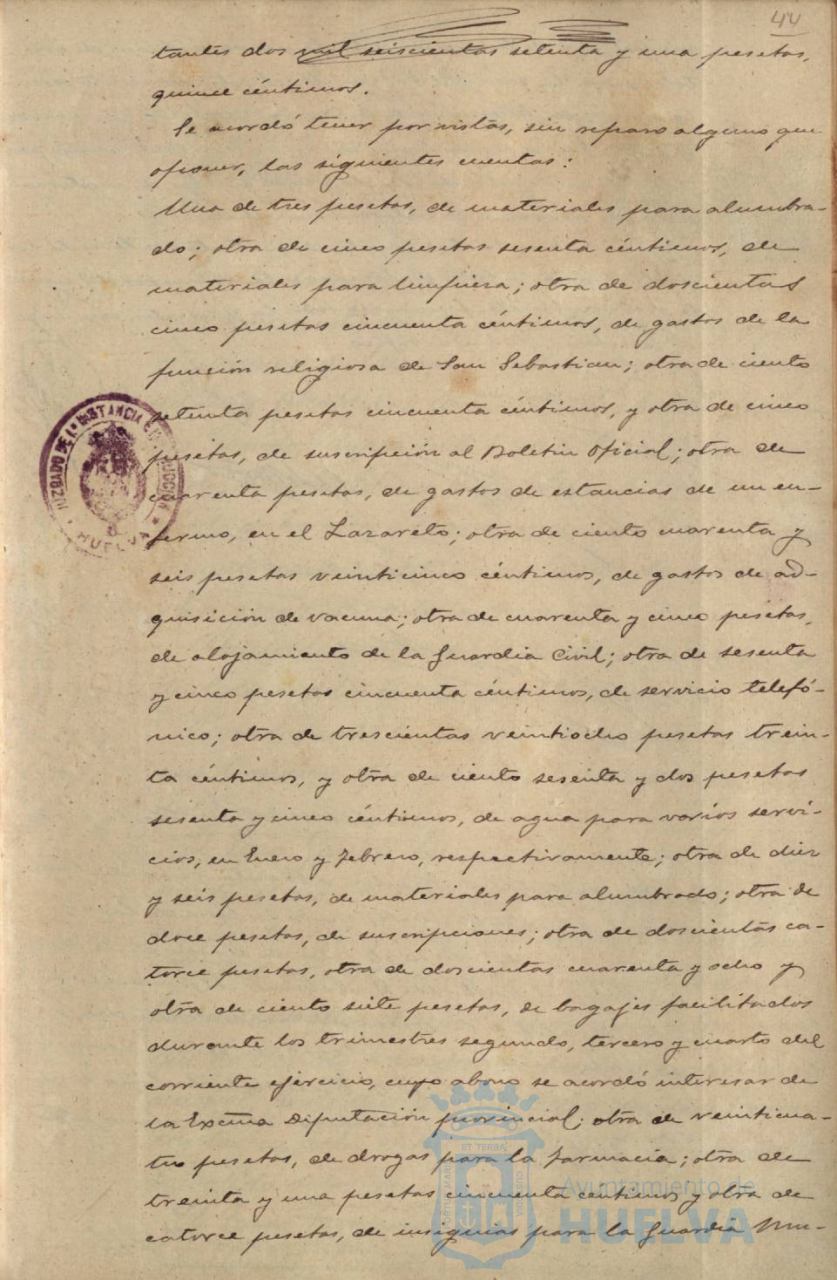 44
tantes dos mil seiscientas setenta y una pesetas,
quince céntimos.
Se acordó tener por vistas, sin reparo alguno que
oponer, las siguientes cuentas:
Una de tres pesetas, de materiales para alumbra-
do; otra de cinco pesetas sesenta céntimos, de
materiales para limpieza; otra de doscientas
cinco pesetas cincuenta céntimos, de gastos de la
función religiosa de San Sebastian; otra de ciento
setenta pesetas cincuenta céntimos, y otra de cinco
pesetas, de suscripción al Boletin Oficial; otra de
cuarenta pesetas, de gastos de estancias de un en-
fermo, en el Lazareto; otra de ciento cuarenta y
seis pesetas veinticinco céntimos, de gastos de ad-
quisición de vacuna; otra de cuarenta y cinco pesetas,
de alojamiento de la Guardia Civil; otra de sesenta
y cinco pesetas cincuenta céntimos, de servicio telefó-
nico; otra de trescientas veintiocho pesetas trein-
ta céntimos, y otra de ciento sesenta y dos pesetas
sesenta y cinco céntimos, de agua para varios servi-
cios, en Enero y Febrero, respectivamente; otra de diez
y seis pesetas, de materiales para alumbrado; otra de
doce pesetas, de suscripciones; otra de doscientas ca-
torce pesetas, otra de doscientas cuarenta y ocho y
otra de ciento siete pesetas, de bagajes facilitados
durante los trimestres segundo, tercero y cuarto del
corriente ejercicio, cuyo abono se acordó interesar de
la Excma Diputación provincial; otra de veinticua-
tro pesetas, de drogas para la farmacia; otra de
treinta y una pesetas cincuenta céntimos y otra de
catorce pesetas, de insignias para la Guardia Mu-
JUZGADO DE 1ª INSTANCIA E INSTRUCCION
HUELVA
Ayuntamiento de
HUELVA